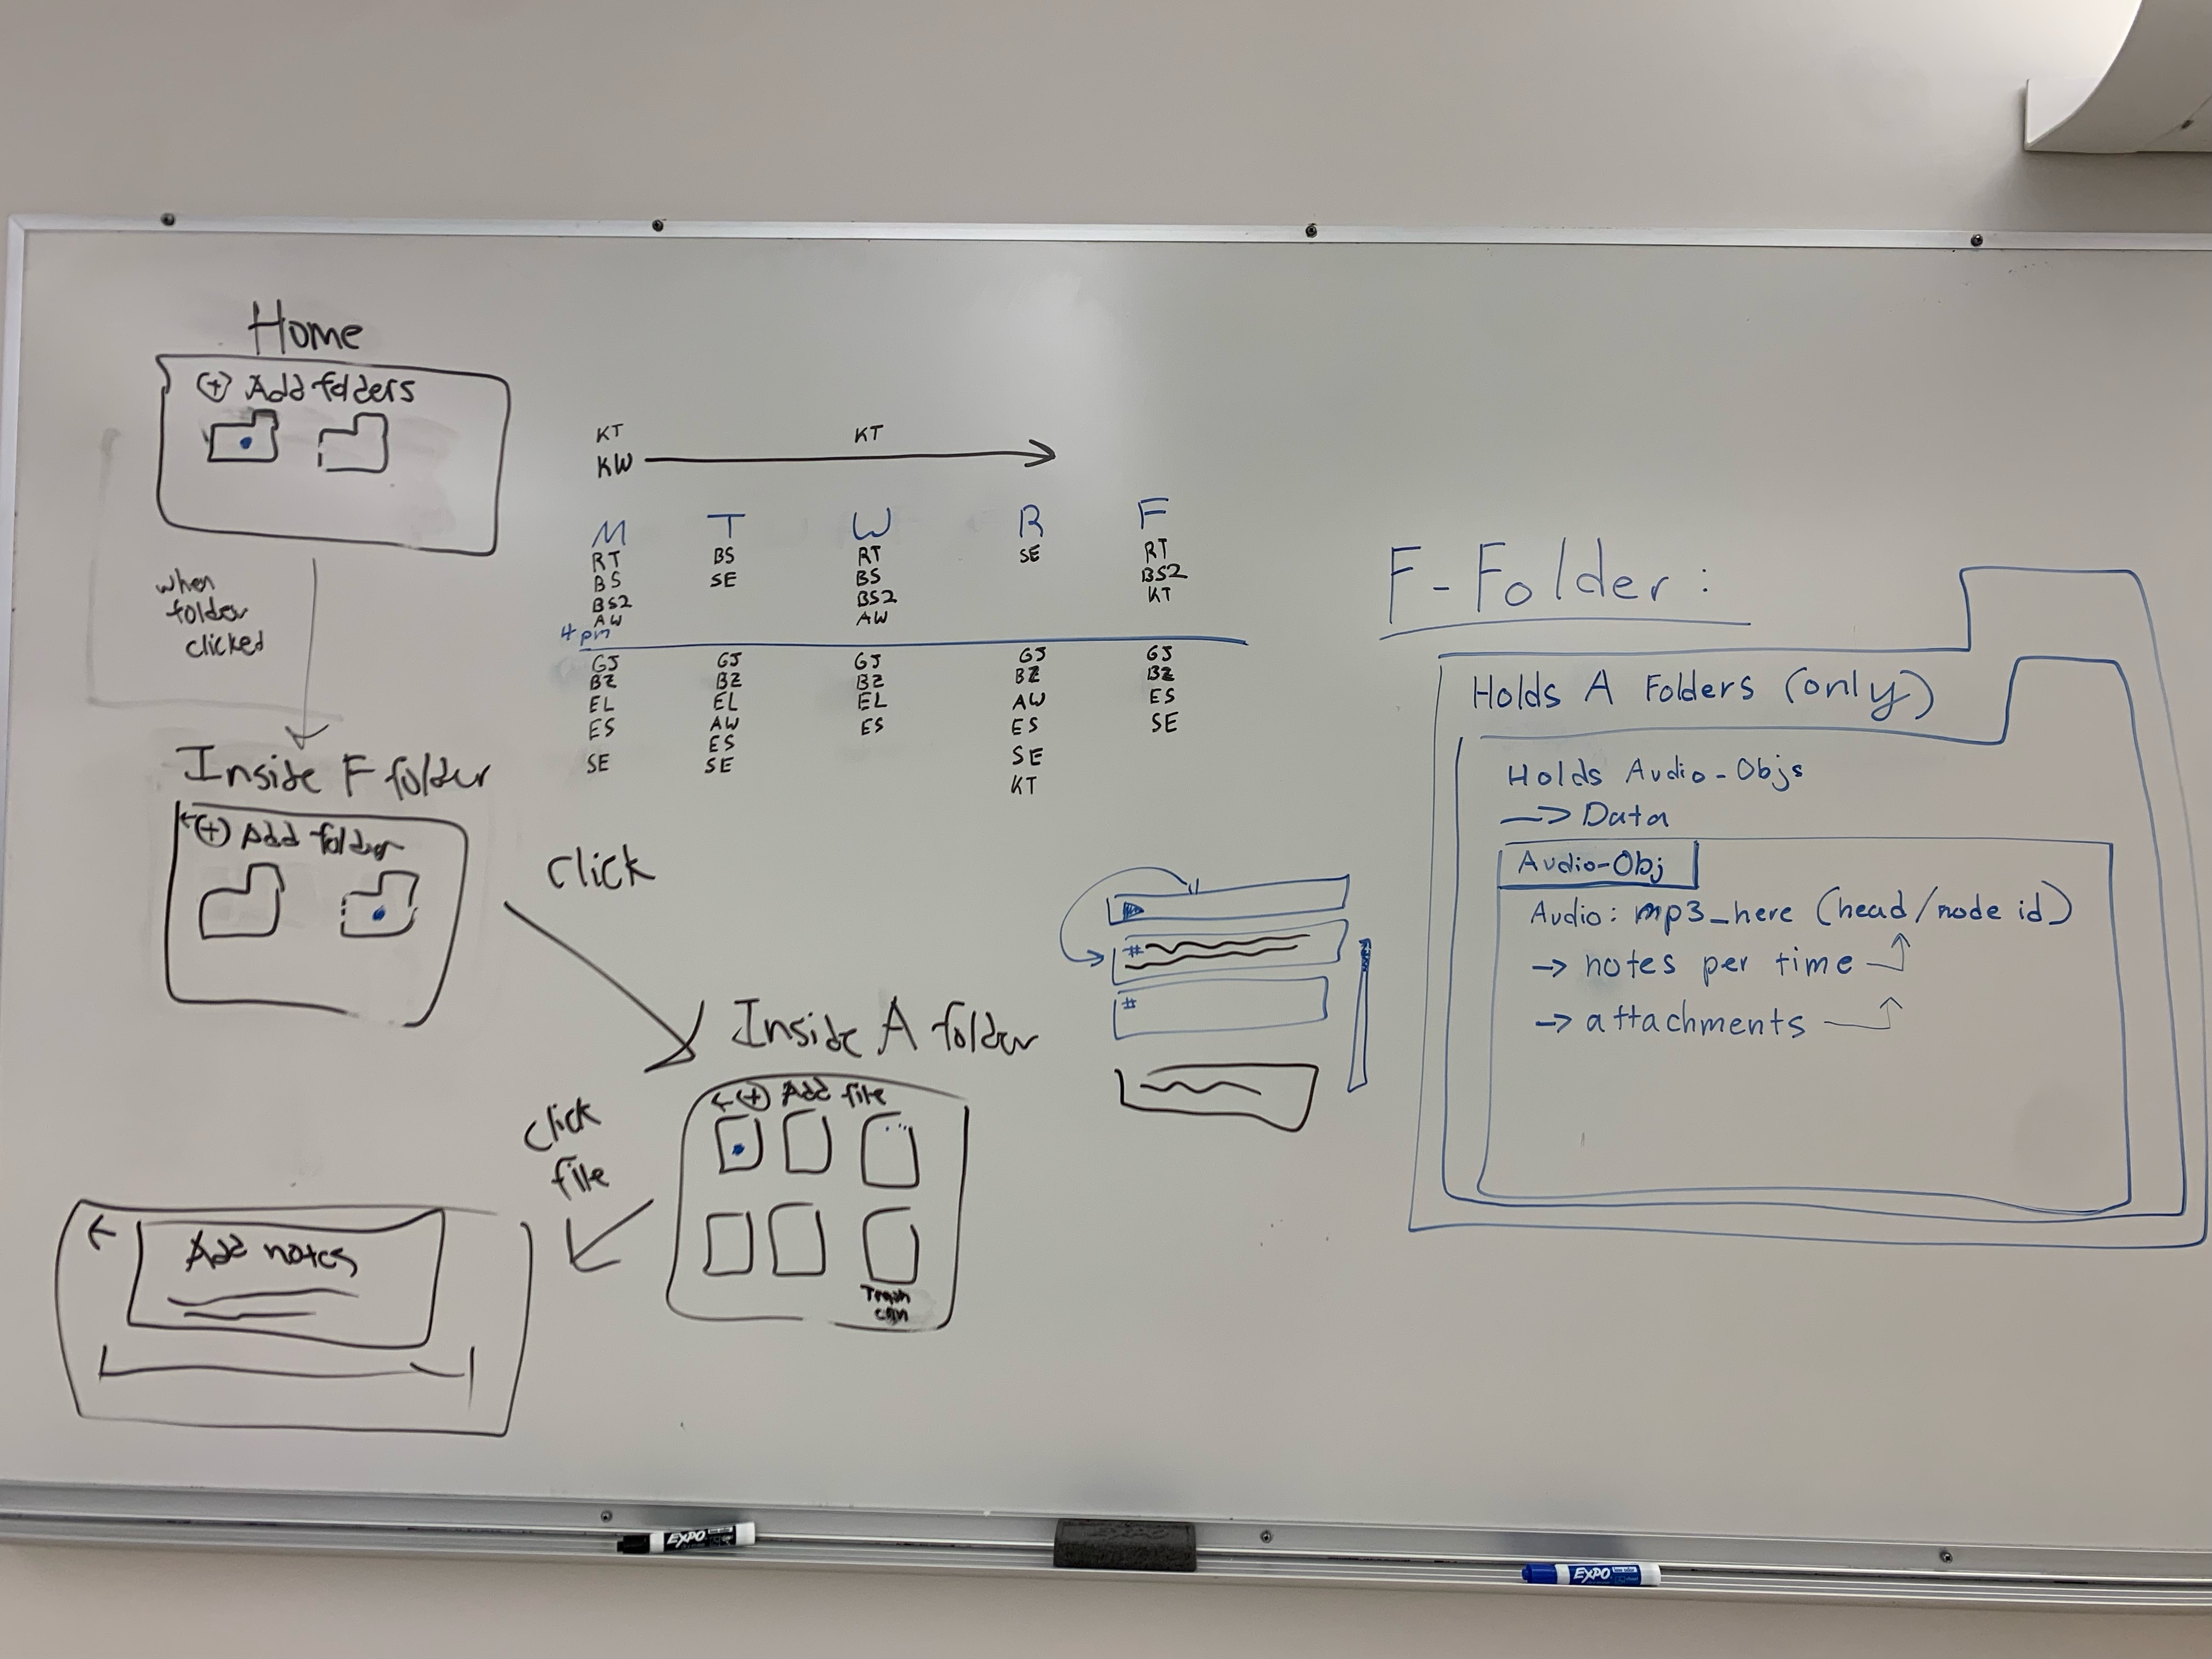 Home
(+) Add folders
when
folder
clicked
Inside F folder
←(+) Add folder
click
Inside A folder
←(+) Add file
Trash
can
click
file
←
Add notes
KT KT
KW
M T W R F
RT BS RT SE RT
BS SE BS BS2
BS2 BS2 KT
AW AW
4 pm
GJ GJ GJ GJ GJ
BZ BZ BZ BZ BZ
EL EL EL AW ES
ES AW ES ES SE
ES SE
SE SE KT
#
#
F-Folder:
Holds A Folders (only)
Holds Audio-Objs
→ Data
Audio-Obj
Audio: mp3_here (head/node id)
→ notes per time
→ attachments
EXPO
EXPO